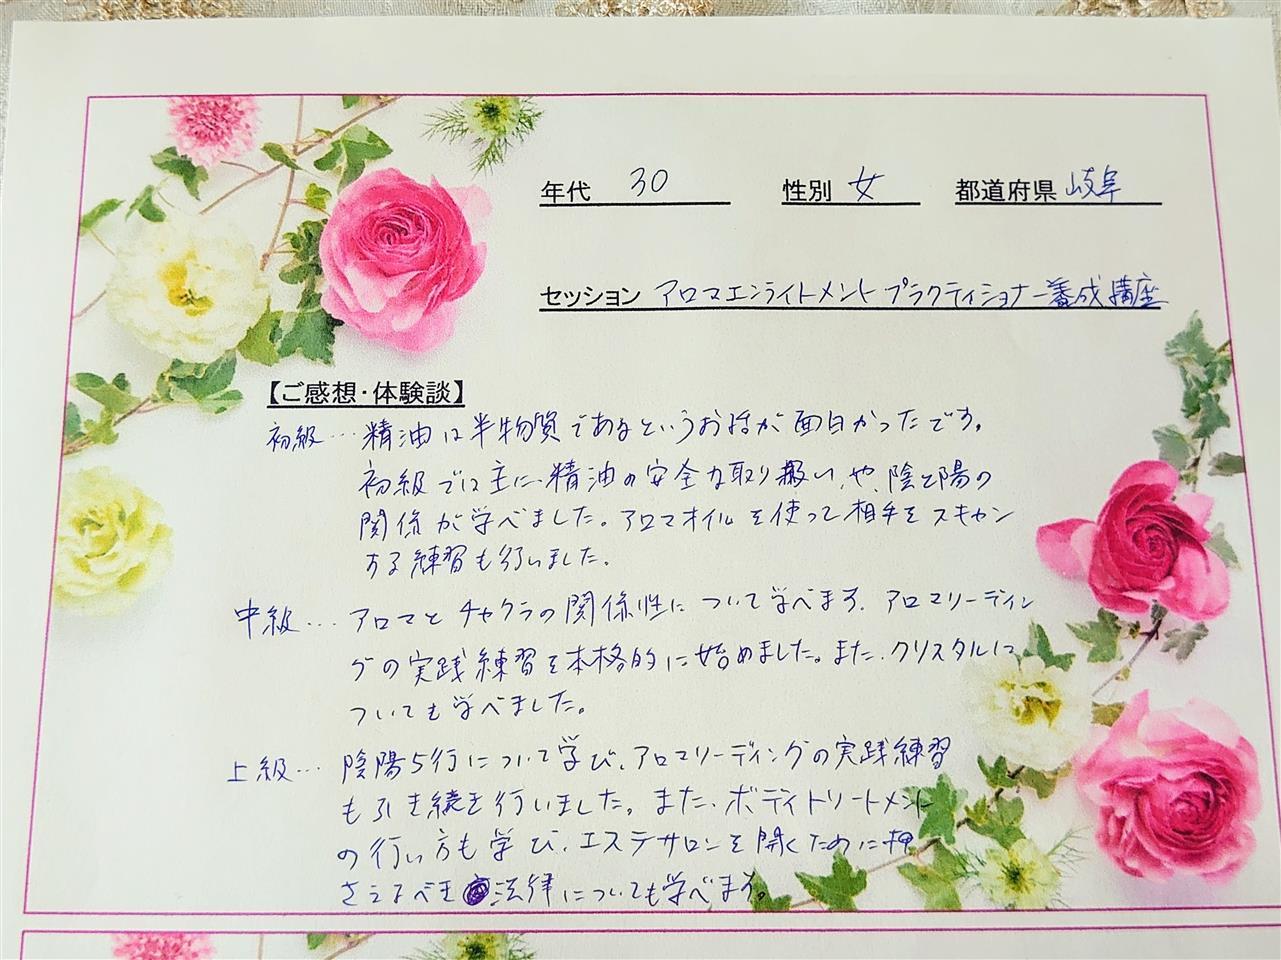 年代 30 性別 女 都道府県 岐阜
セッション アロマエンライトメントプラクティショナー養成講座
【ご感想・体験談】
初級… 精油は半物質であるというお話が面白かったです。
初級では主に、精油の安全な取り扱い、や、陰と陽の
関係が学べました。アロマオイルを使って相手をスキャン
する練習も行いました。
中級… アロマとチャクラの関係性について学べます。アロマリーディン
グの実践練習を本格的に始めました。また、クリスタルに
ついても学べました。
上級… 陰陽5行について学び、アロマリーディングの実践練習
も引き続き行いました。また、ボディトリートメント
の行い方も学び、エステサロンを開くために押
さえるべき法律についても学べます。